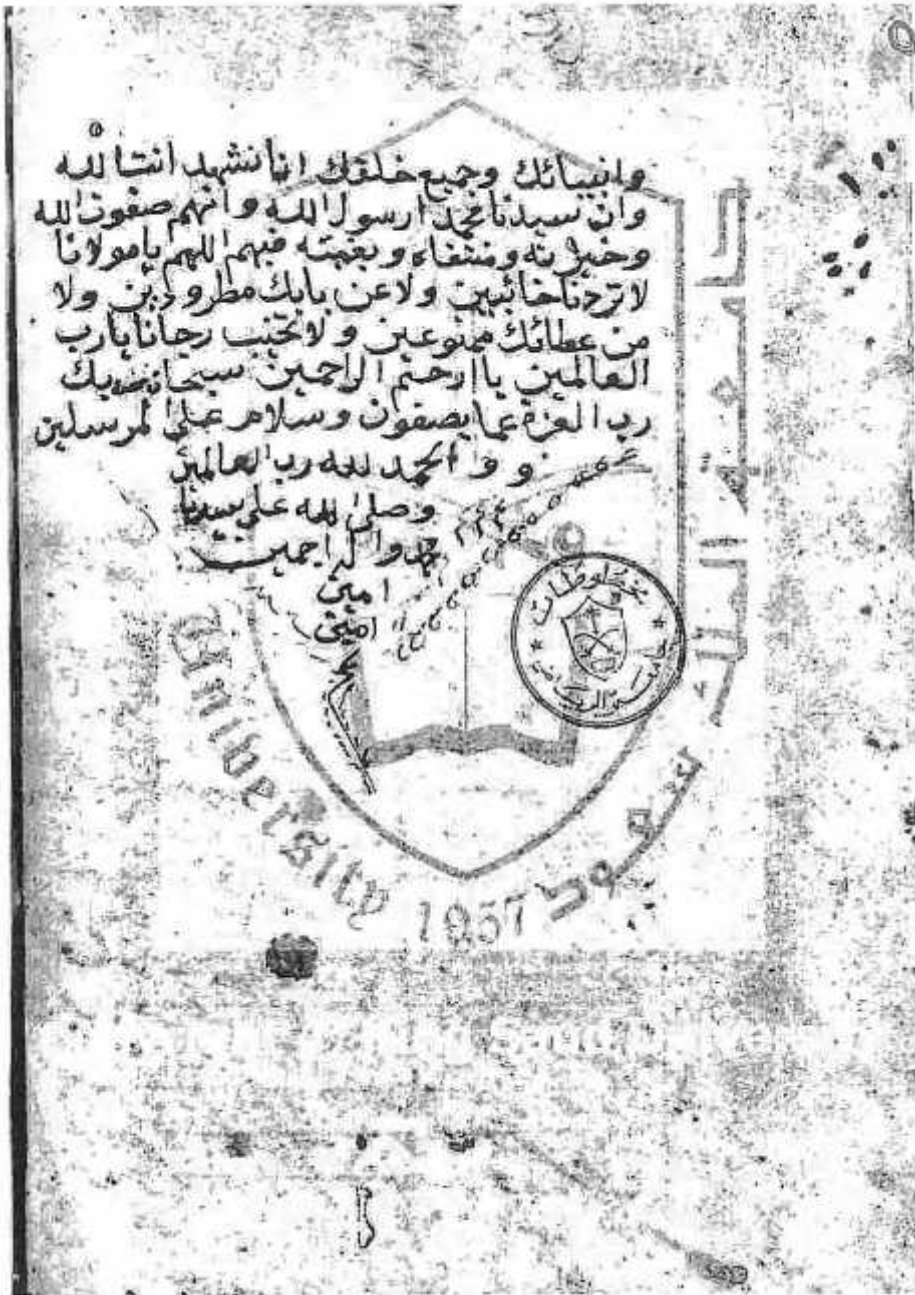 وانبيائك وجميع خلقك اننا نشهد انت الله
وان سيدنا محمد ارسول الله وانهم صفوت الله
وخيرته ومنتقاه وبغيته فيهم اللهم يامولانا
لا تردنا خائبين ولا عن بابك مطرودين ولا
من عطائك ممنوعين ولا تخيب رجانا يارب
العالمين ياارحم الراحمين سبحان ربك
رب العزة عما يصفون وسلام على المرسلين
و والحمد لله رب العالمين
وصلى الله على سيدنا
اجمعين
امين
امين
مخطوطات
جامعة الرياض
جامعة الملك سعود
University 1957